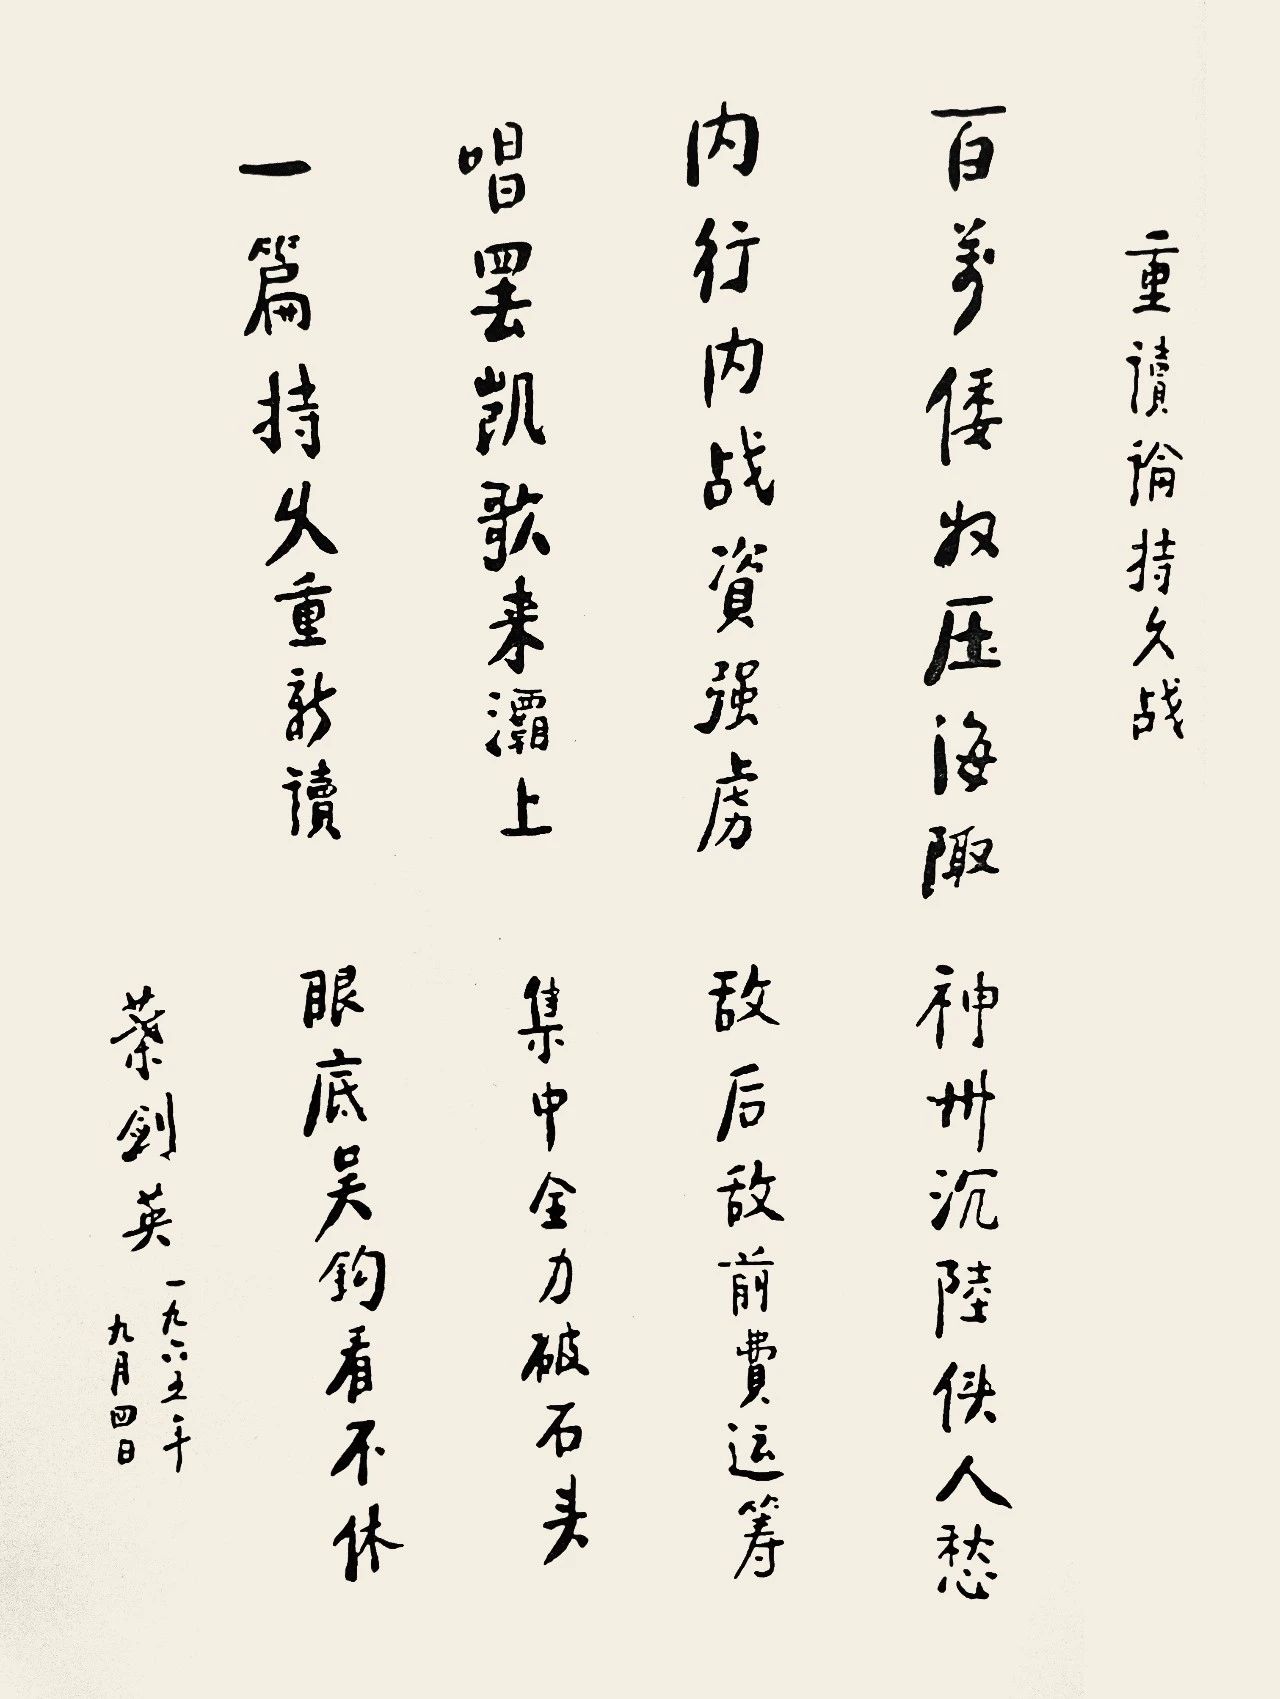 重讀論持久战
百萬倭奴压海陬 神州沉陸使人愁
内行内战資强虏 敌后敌前費运筹
唱罢凯歌来灞上 集中全力破石头
一篇持久重新讀 眼底吴鈎看不休
葉劍英
一九六五年
九月四日